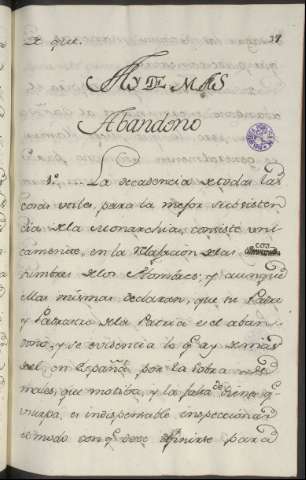 Lo que. 37
AY DE MAS
Abandono
1º. La decadencia de todas las
cosas utiles, para la mejor subsisten
cia de la Monarchia, consiste uni
camente, en la relaxacion de las cos
tumbres de los Hombres; y aunque
ellas mismas declaran, que su Padre
y Patrocinio de la Patria es el aban
dono, y se evidencia lo q.e ay de mas
del, en España, por la sobra de
males, que motiba, y la falta de bienes q.e
usurpa, es indispensable inspeccionar
el modo con q.e debe definirse para